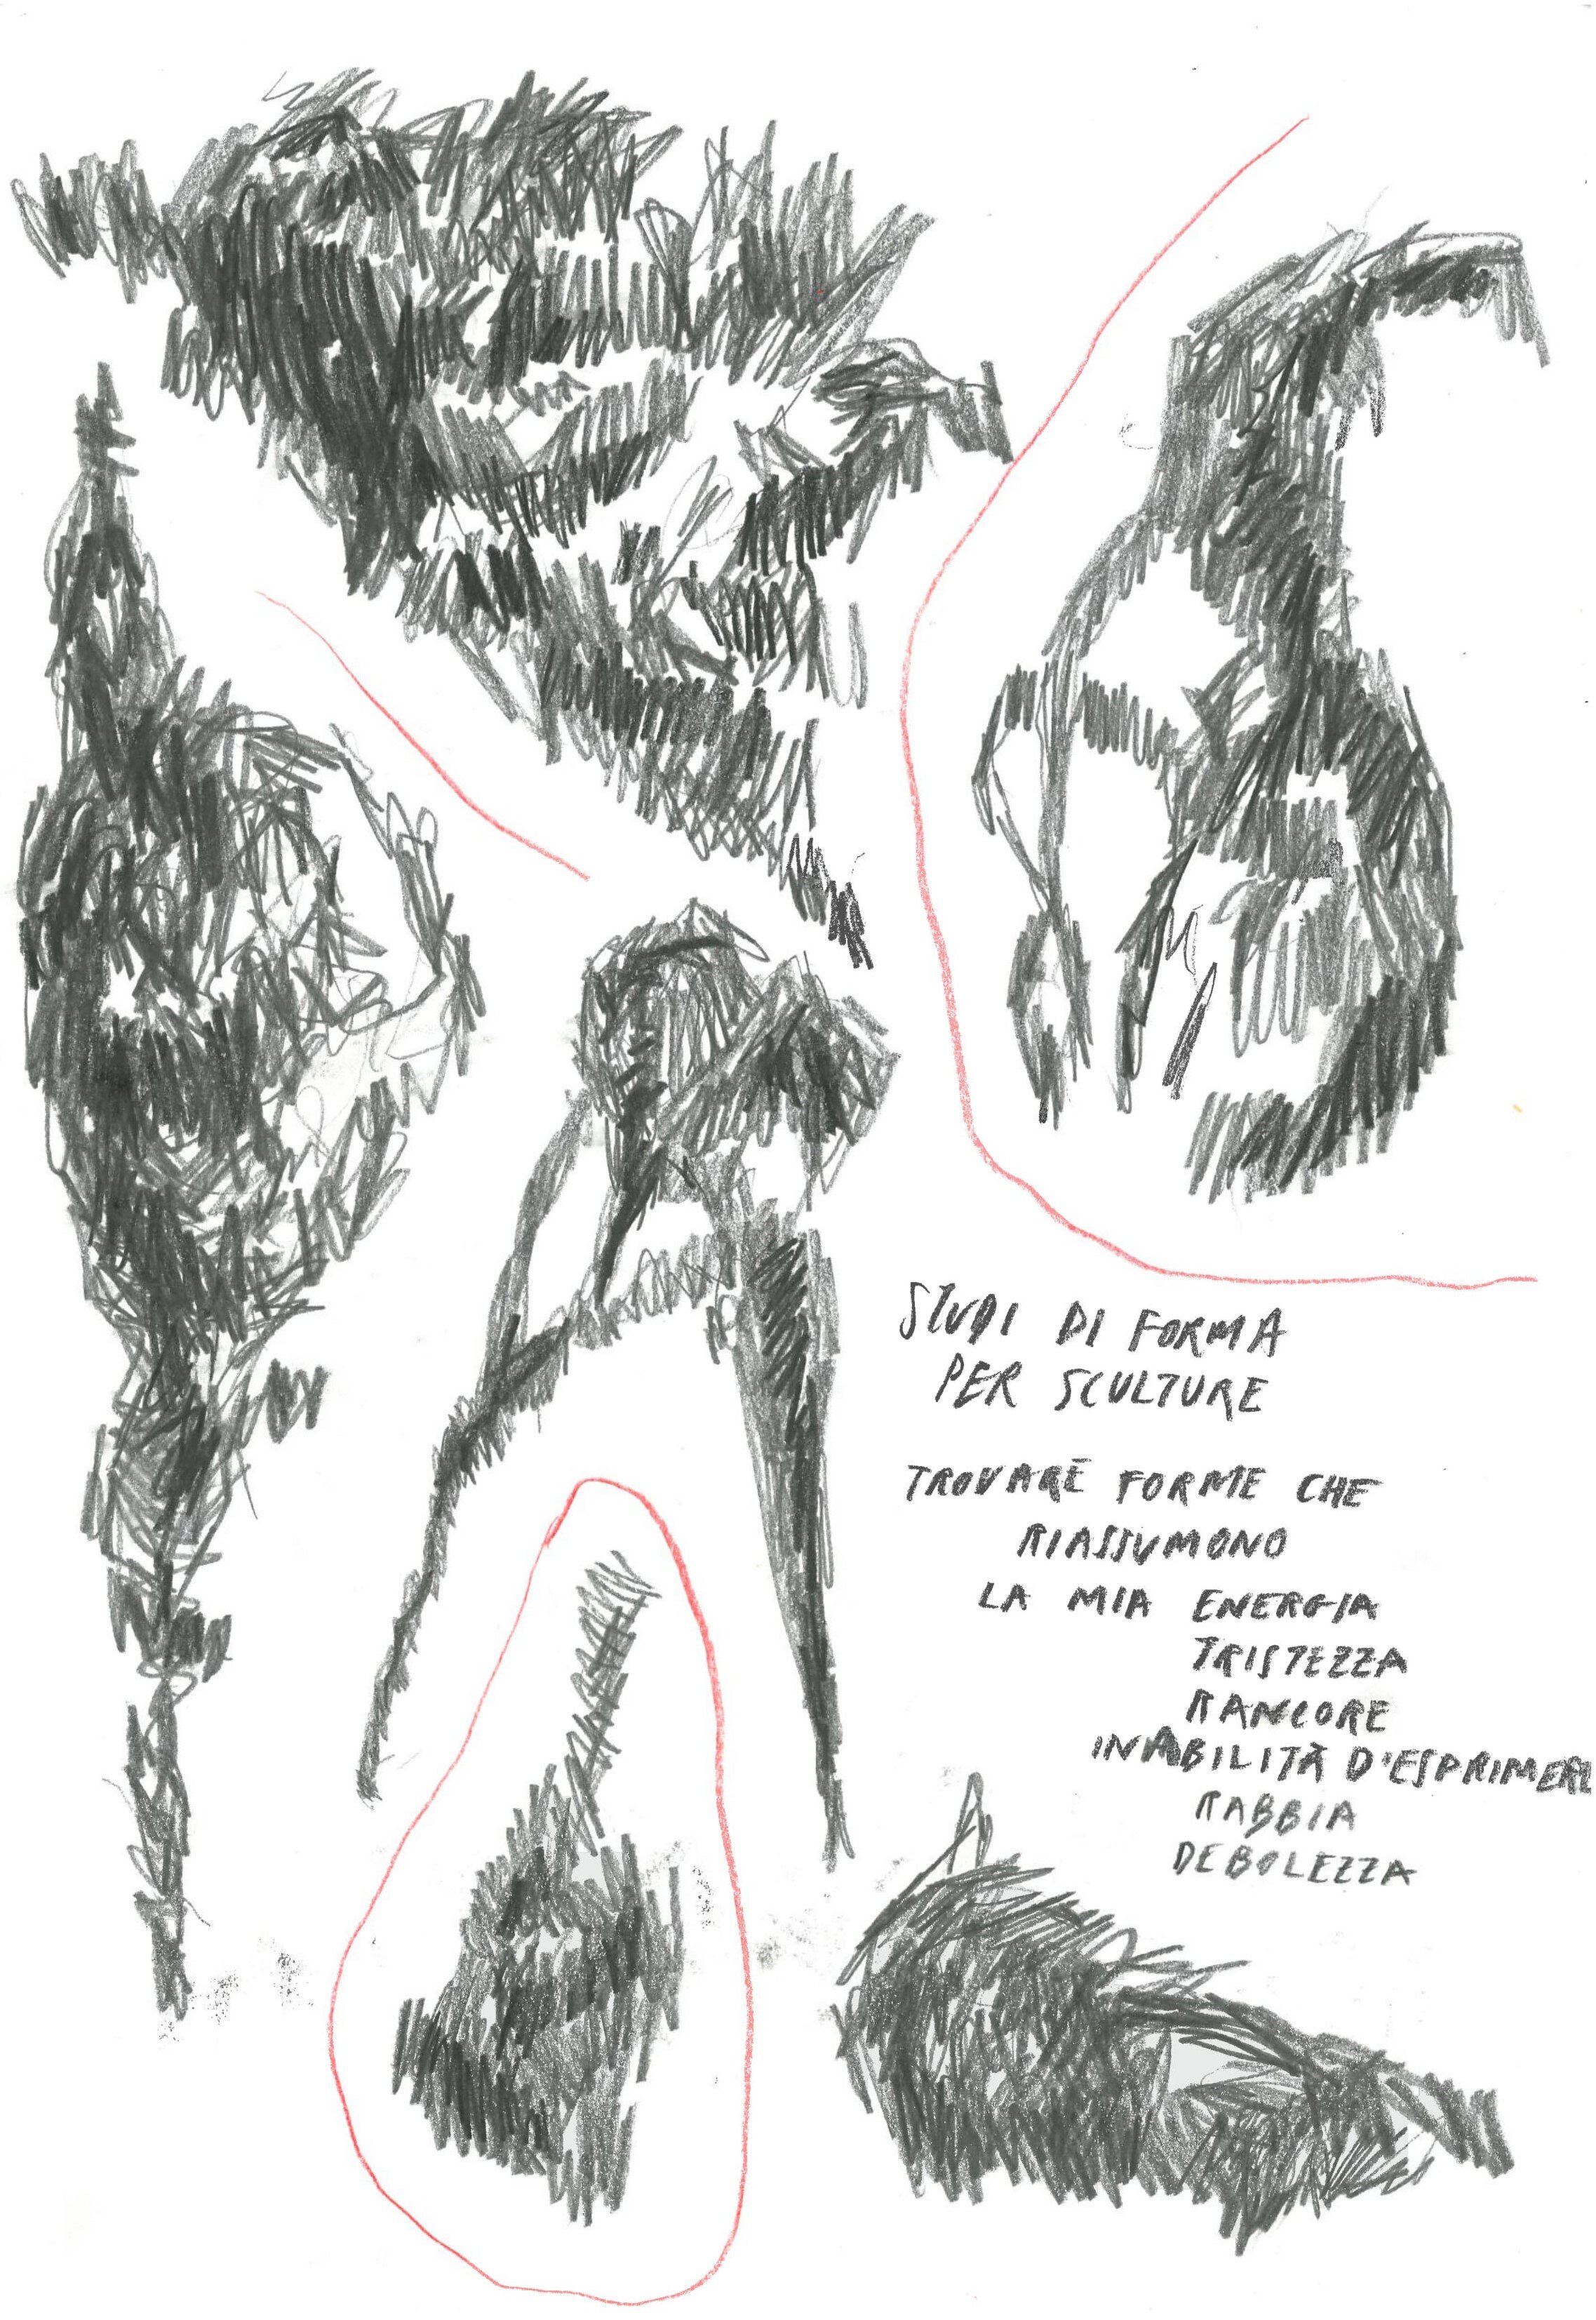 STUDI DI FORMA
PER SCULTURE
TROVARE FORME CHE
RIASSUMONO
LA MIA ENERGIA
TRISTEZZA
RANCORE
INABILITÀ D'ESPRIMERE
RABBIA
DEBOLEZZA